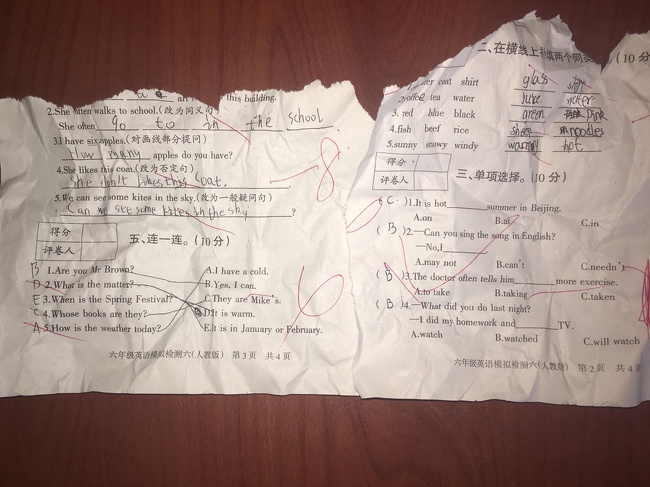 this building.
2.She often walks to school.(改为同义句)
She often go to in the school.
3.I have six apples.(对画线部分提问)
How many apples do you have?
4.She likes this coat.(改为否定句)
She don't likes this coat.
5.We can see some kites in the sky.(改为一般疑问句)
Can we see some kites in the sky?
8
得分
评卷人
五、连一连。(10分)
B 1.Are you Mr Brown? A.I have a cold.
D 2.What is the matter? B.Yes, I can.
E 3.When is the Spring Festival? C.They are Mike's.
C 4.Whose books are they? D.It is warm.
A 5.How is the weather today? E.It is in January or February.
6
六年级英语模拟检测六(人教版) 第3页 共4页
二、在横线上 填两个同 (10分)
coat shirt glass
2.coffee tea water juice water
3.red blue black green pink
4.fish beef rice sheep noodles
5.sunny snowy windy hot
得分
评卷人
三、单项选择。(10分)
(C)1.It is hot summer in Beijing.
A.on B.at C.in
(B)2.—Can you sing the song in English?
—No,I .
A.may not B.can't C.needn't
(B)3.The doctor often tells him more exercise.
A.to take B.taking C.taken
(B)4.—What did you do last night?
—I did my homework and TV.
A.watch B.watched C.will watch
六年级英语模拟检测六(人教版) 第2页 共4